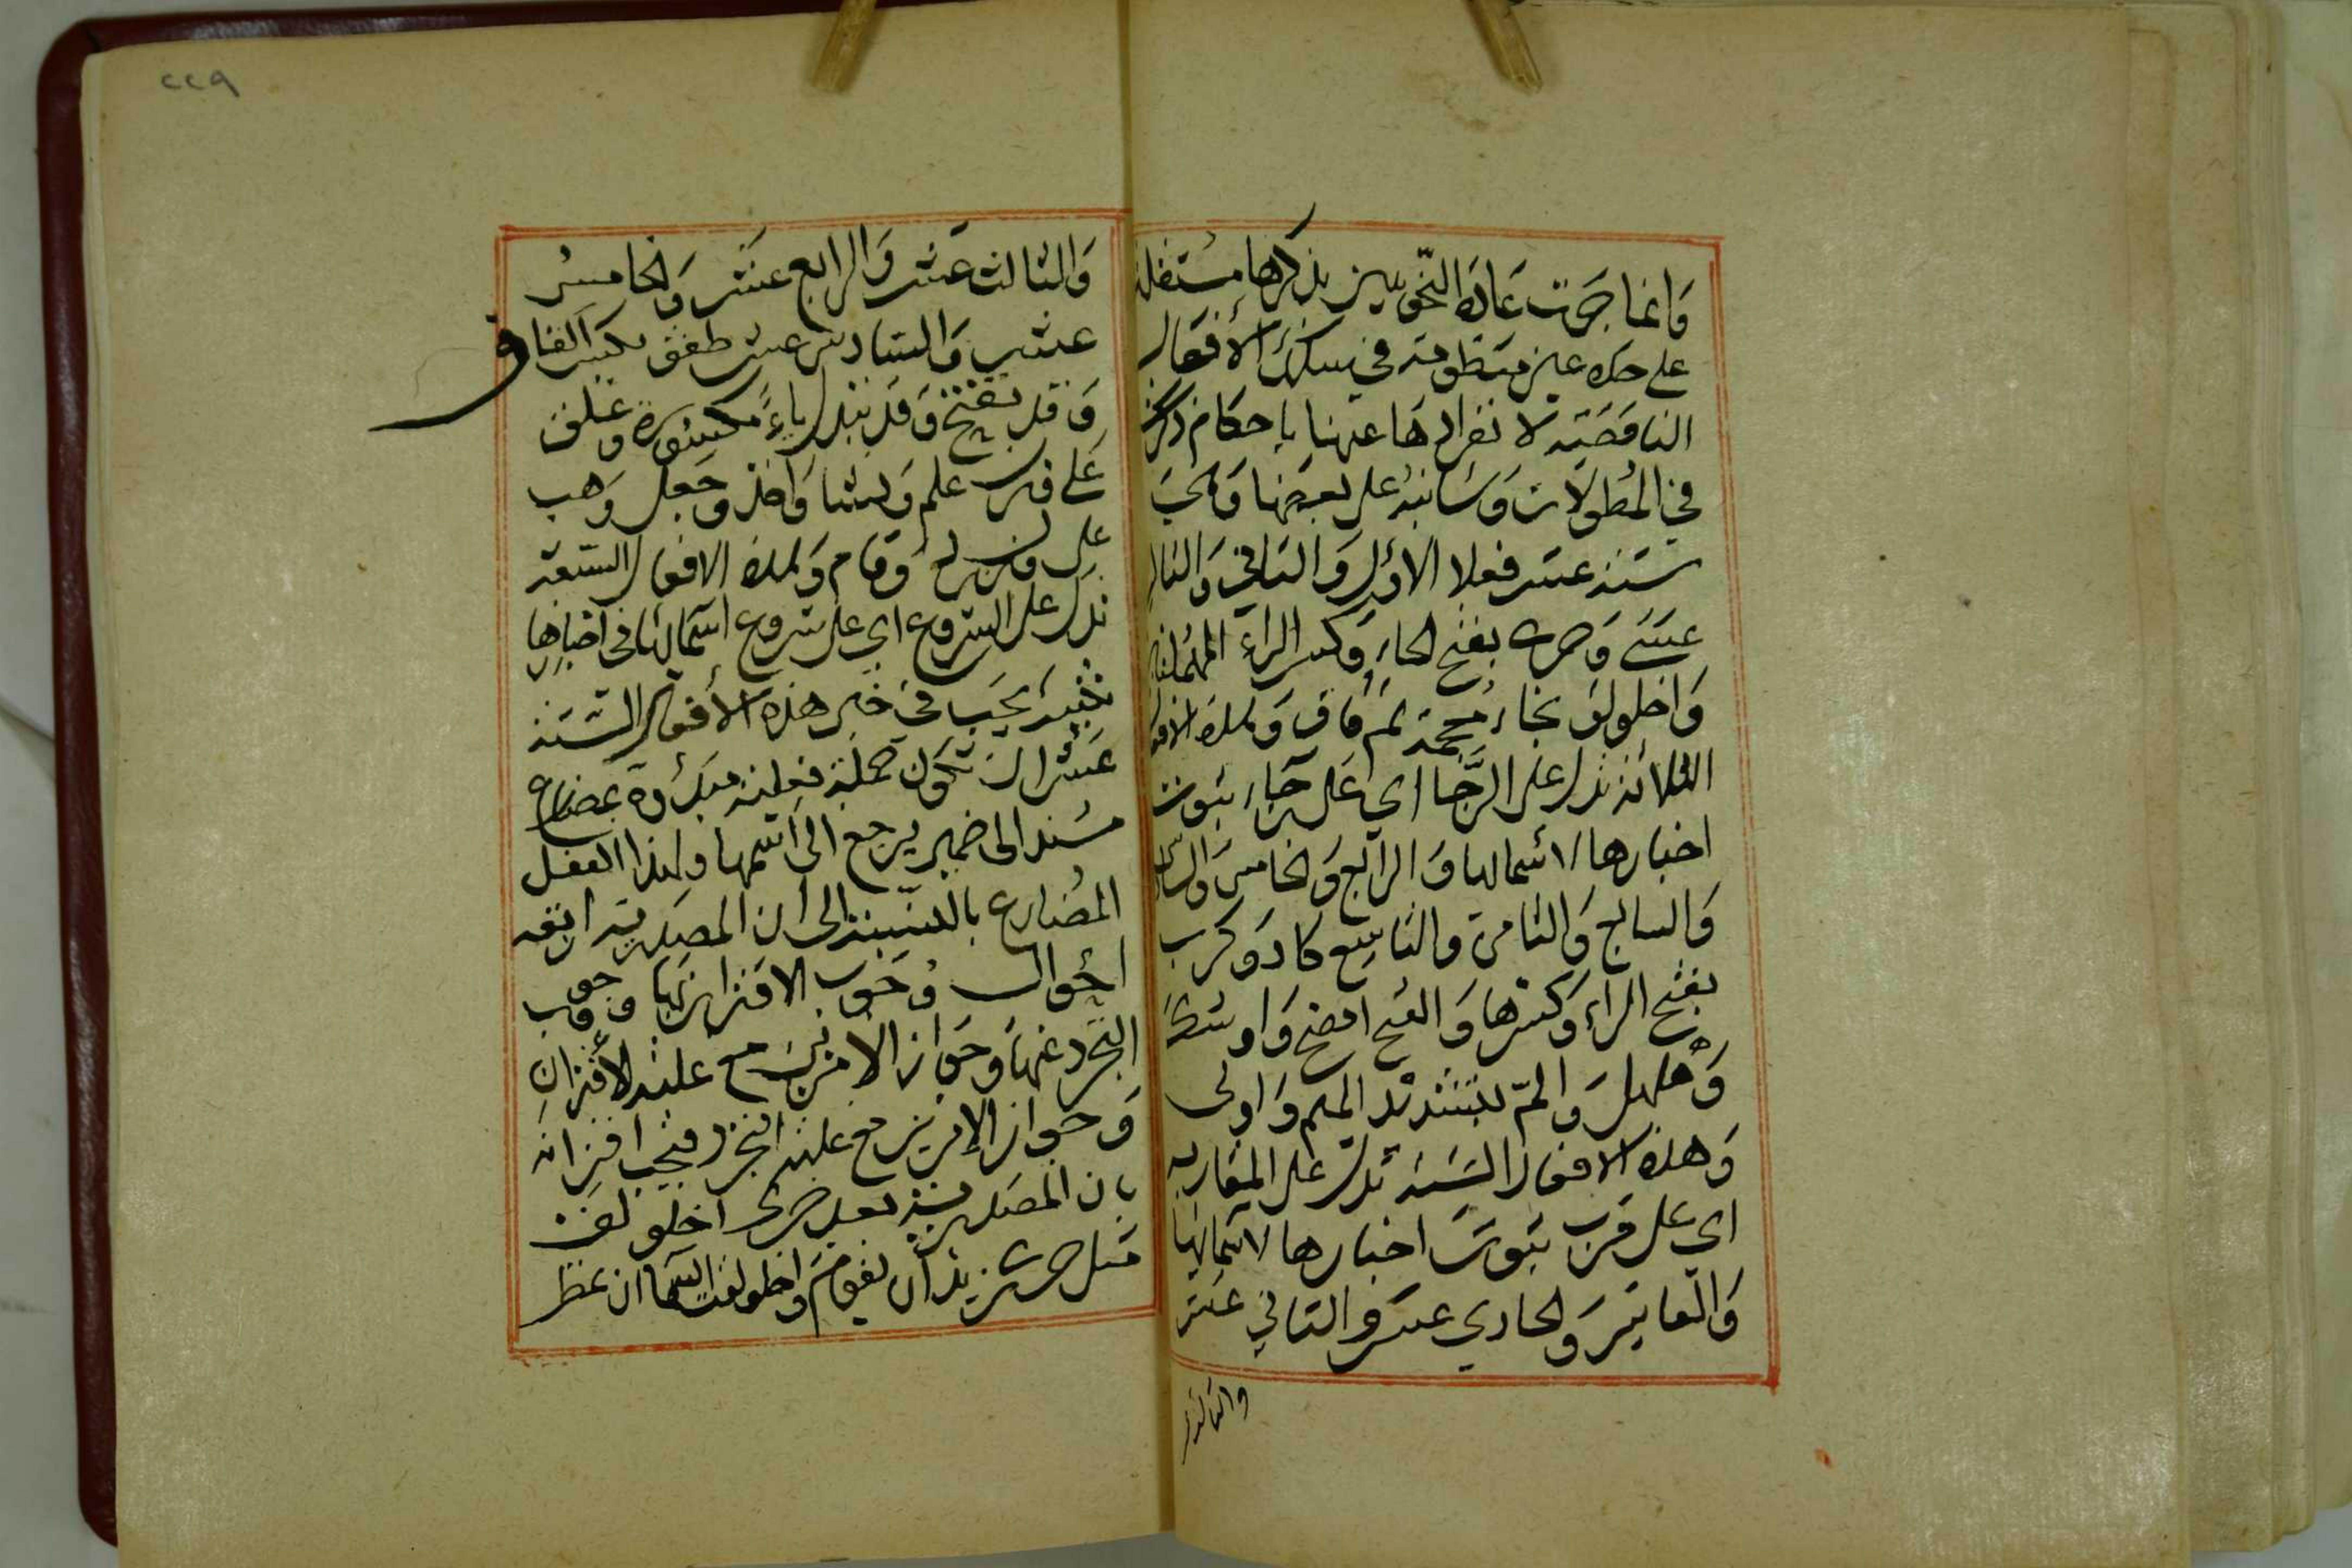 وانما جرت عادة النحويين بذكرها مستقلة
على حدة غير منظومة في سلك الأفعال
الناقصة لانفرادها عنها بإحكام ذكرت
في المطولات وسانبه على بعضها وهي
ستة عشر فعلا الاول والثاني والثالث
عسى وحرى بفتح الحاء وكسر الراء المهملتين
واخلولق بخاء معجمة ثم قاف وهذه الافعال
الثلاثة تدل على الرجا اي على رجاء ثبوت
اخبارها لاسمائها والرابع والخامس والسادس
والسابع والثامن والتاسع كاد وكرب
بفتح الراء وكسرها والفتح افصح واوشك
وهلهل والمّ بتشديد الميم واولى
وهذه الافعال الستة تدل على المقاربة
اي على قرب ثبوت اخبارها لاسمائها
والعاشر والحادي عشر والثاني عشر
والثالث
٢٢٩
والثالث عشر والرابع عشر والخامس
عشر والسادس عشر طفق بكسر الفاء
وقد تفتح وقد تبدل باء مكسورة وعلق
على وزن علم وانشا واخذ وجعل وهب
على وزن وقام وهذه الافعال السبعة
تدل على الشروع اي على شروع اسمائها في اخبارها
تنبيه يجب في خبر هذه الأفعال الستة
عشر ان تكون جملة فعلية مبدؤة بمضارع
مسند الى ضمير يرجع الى اسمها ولهذا الفعل
المضارع بالنسبة الى أن المصدرية اربعة
احوال وجوب الاقتران بها ووجوب
التجرد عنها وجواز الأمرين مع غلبة الأقتران
وجواز الإمرين مع غلبة التجرد فيجب اقترانه
بان المصدرية بعد حرى اخلولق
مثل حرى زيد أن يقوم واخلولقت السما ان تمطر